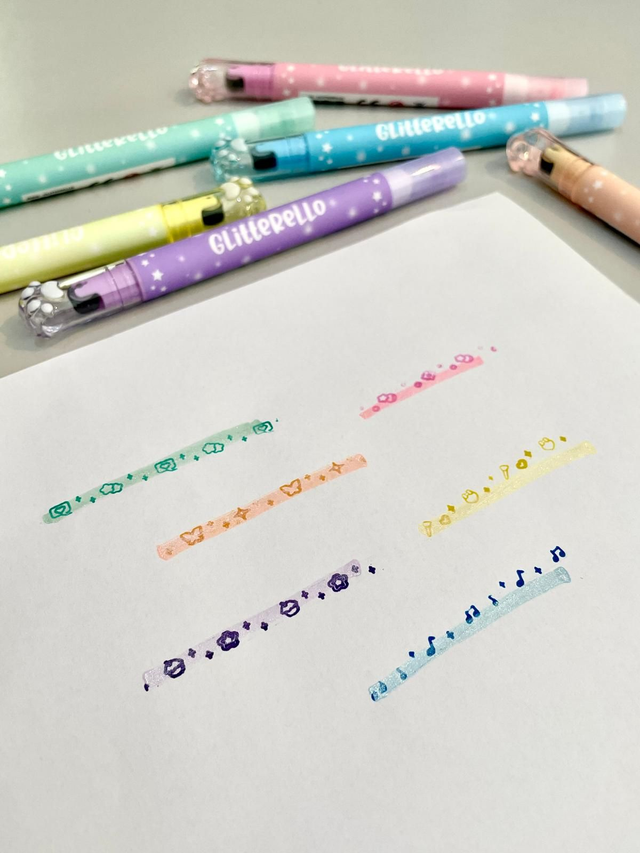 GLitteRELLO
GLitteRELLO
GLitteRELLO
GLitteRELLO